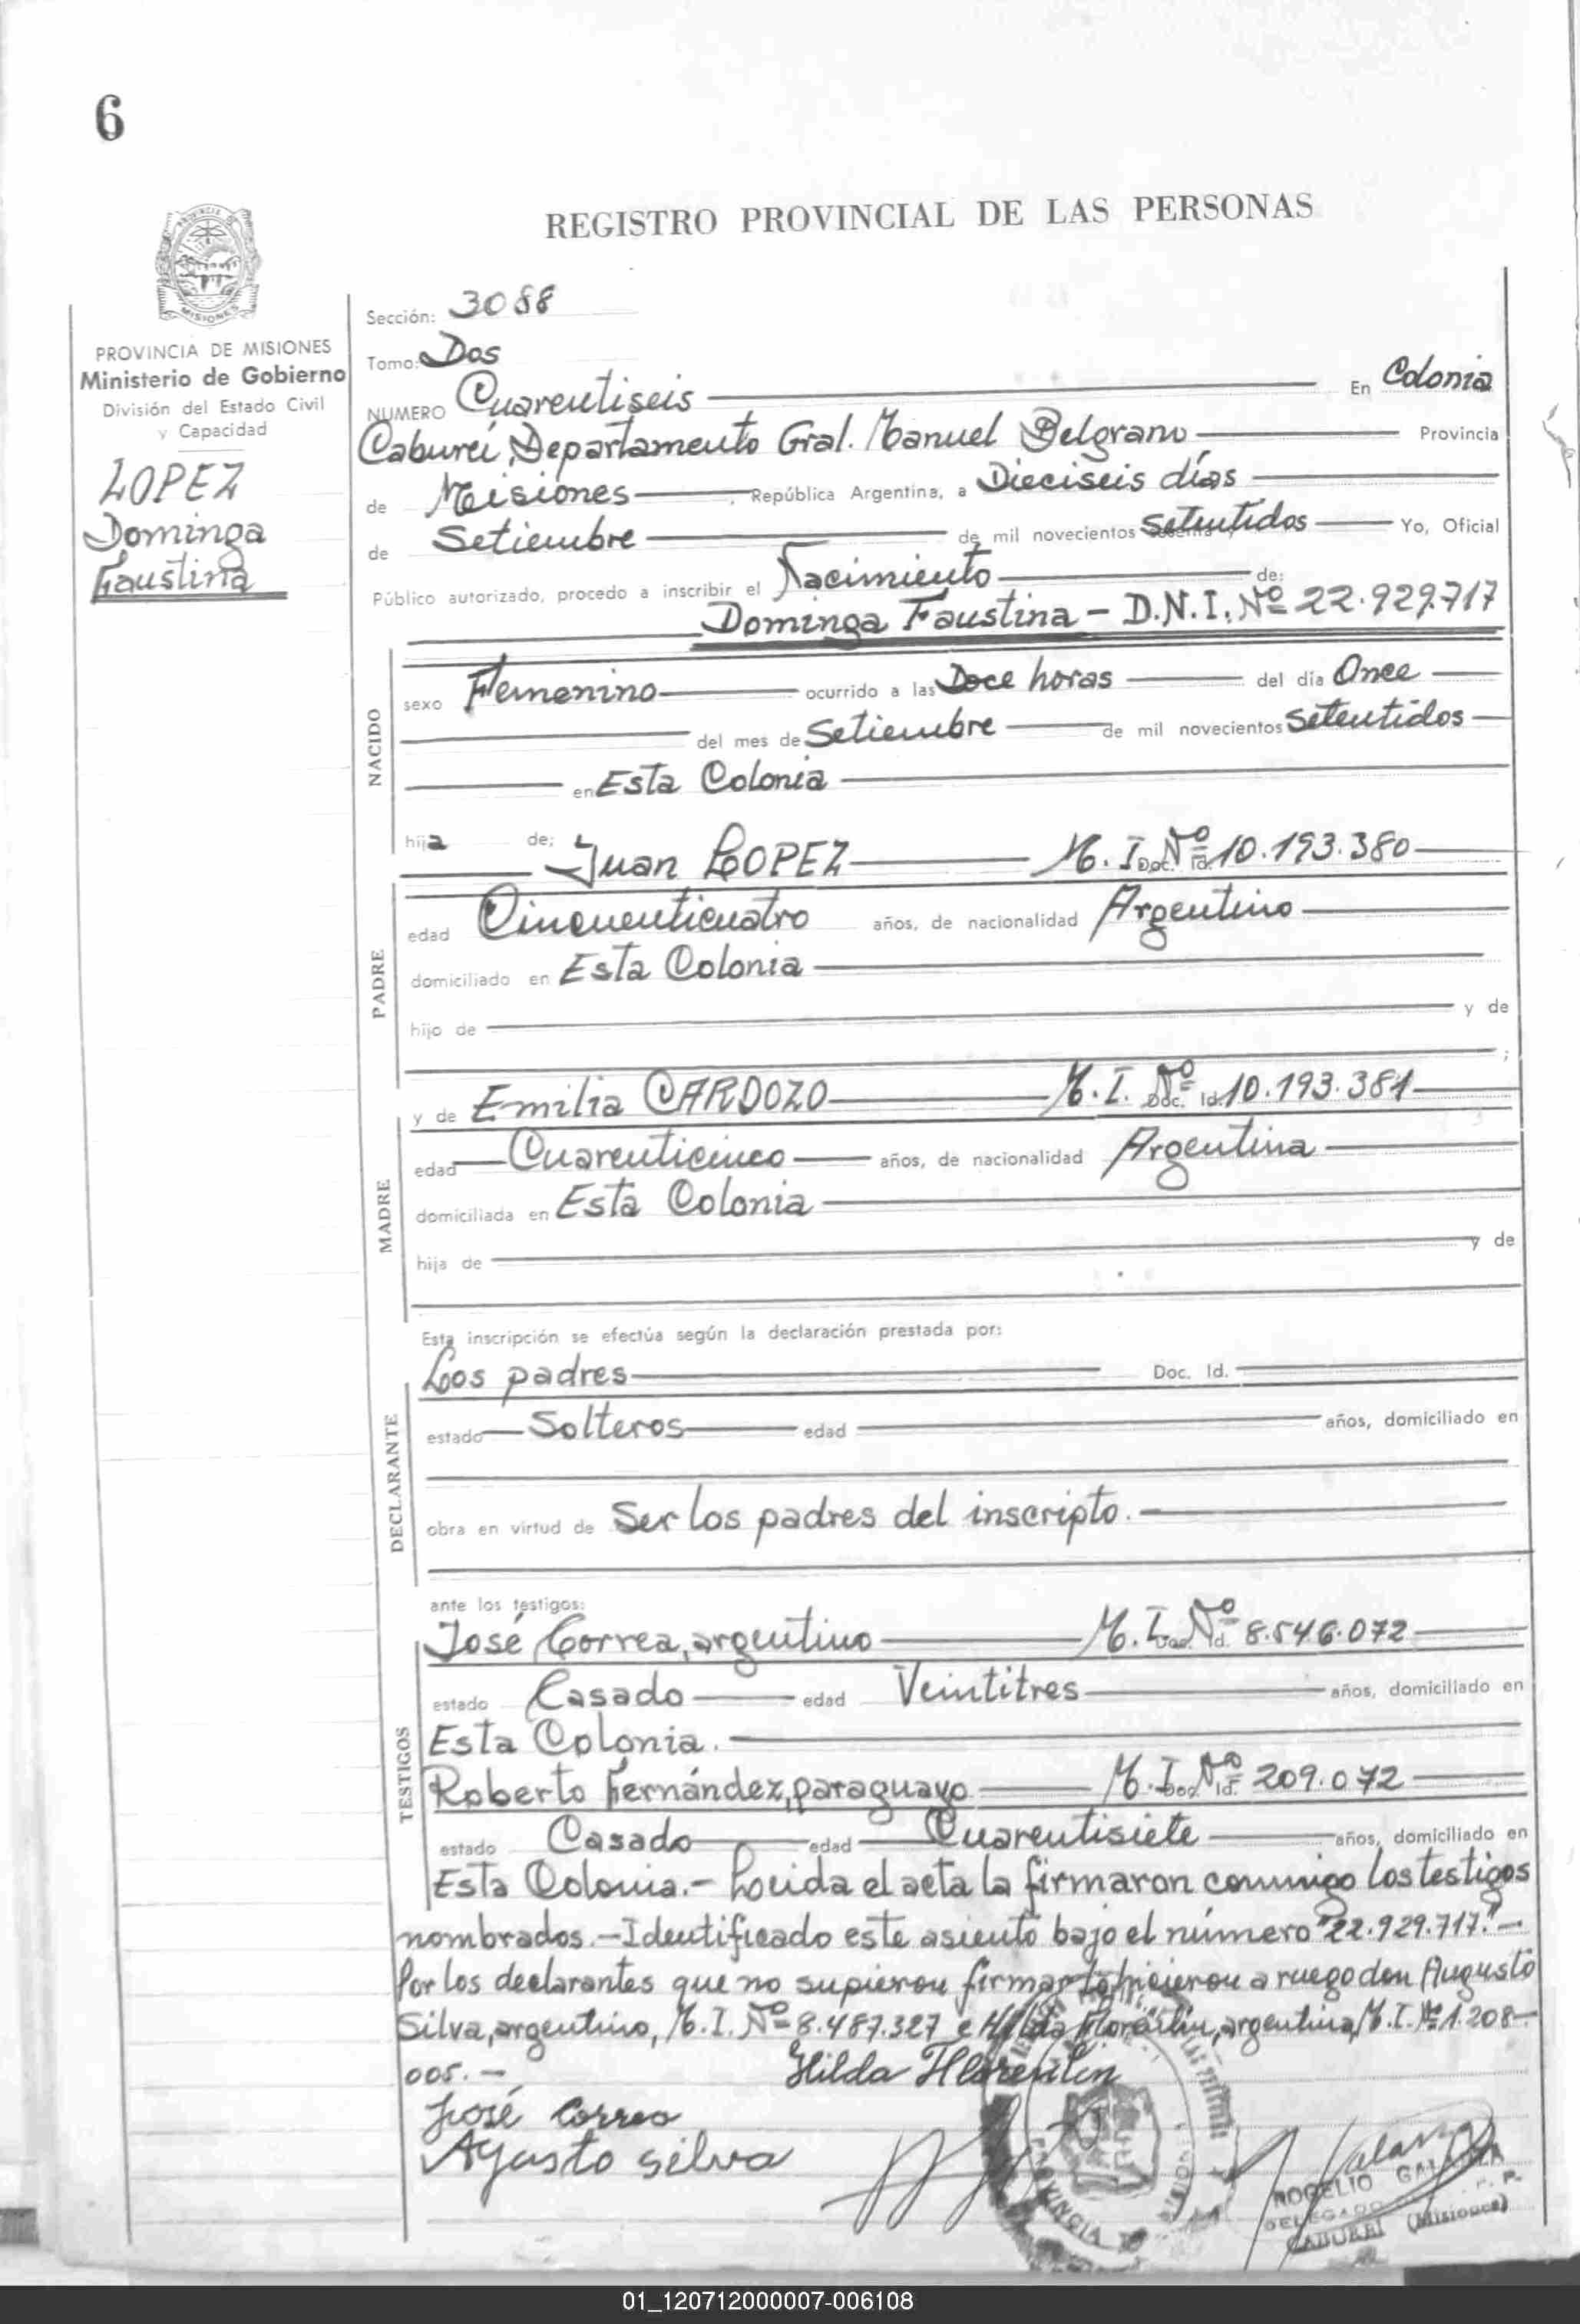 6
REGISTRO PROVINCIAL DE LAS PERSONAS
MISIONES
PROVINCIA DE MISIONES
Ministerio de Gobierno
División del Estado Civil
y Capacidad
LOPEZ
Dominga
Faustina
Sección: 3088
Tomo: Dos
NUMERO Cuarentiseis En Colonia
Caburei, Departamento Gral. Manuel Belgrano Provincia
de Misiones, República Argentina, a Dieciseis días
de Setiembre de mil novecientos Setentidos Yo, Oficial
Público autorizado, procedo a inscribir el Nacimiento de:
Dominga Faustina - D.N.I. Nº 22.929.717
NACIDO
sexo Femenino ocurrido a las Doce horas del día Once
del mes de Setiembre de mil novecientos Setentidos
en Esta Colonia
hija de;
Juan LOPEZ M. I. Doc. Nº Id. 10.193.380
PADRE
edad Cincuenticuatro años, de nacionalidad Argentino
domiciliado en Esta Colonia
hijo de y de
;
y de Emilia CARDOZO M. I. Nº Doc. Id. 10.193.381
MADRE
edad Cuarenticinco años, de nacionalidad Argentina
domiciliada en Esta Colonia
hija de y de
Esta inscripción se efectúa según la declaración prestada por:
DECLARANTE
Los padres Doc. Id.
estado Solteros edad años, domiciliado en
obra en virtud de Ser los padres del inscripto.
ante los testigos:
TESTIGOS
José Correa, argentino M. I. Nº Doc. Id. 8.546.072
estado Casado edad Veintitres años, domiciliado en
Esta Colonia.
Roberto Fernández, paraguayo M. I. Nº Doc. Id. 209.072
estado Casado edad Cuarentisiete años, domiciliado en
Esta Colonia.- Leida el acta la firmaron conmigo los testigos
nombrados.- Identificado este asiento bajo el número "22.929.717."-
Por los declarantes que no supieron firmar lo hicieron a ruego don Augusto
Silva, argentino, M. I. Nº 8.487.327 e Hilda Florentin, argentina, M. I. Nº 1.208-
005.-
Hilda Florentin
José Correa
Agusto silva
PROVINCIA
ROGELIO
DELEGADO
CABUREI (Misiones)
01_120712000007-006108